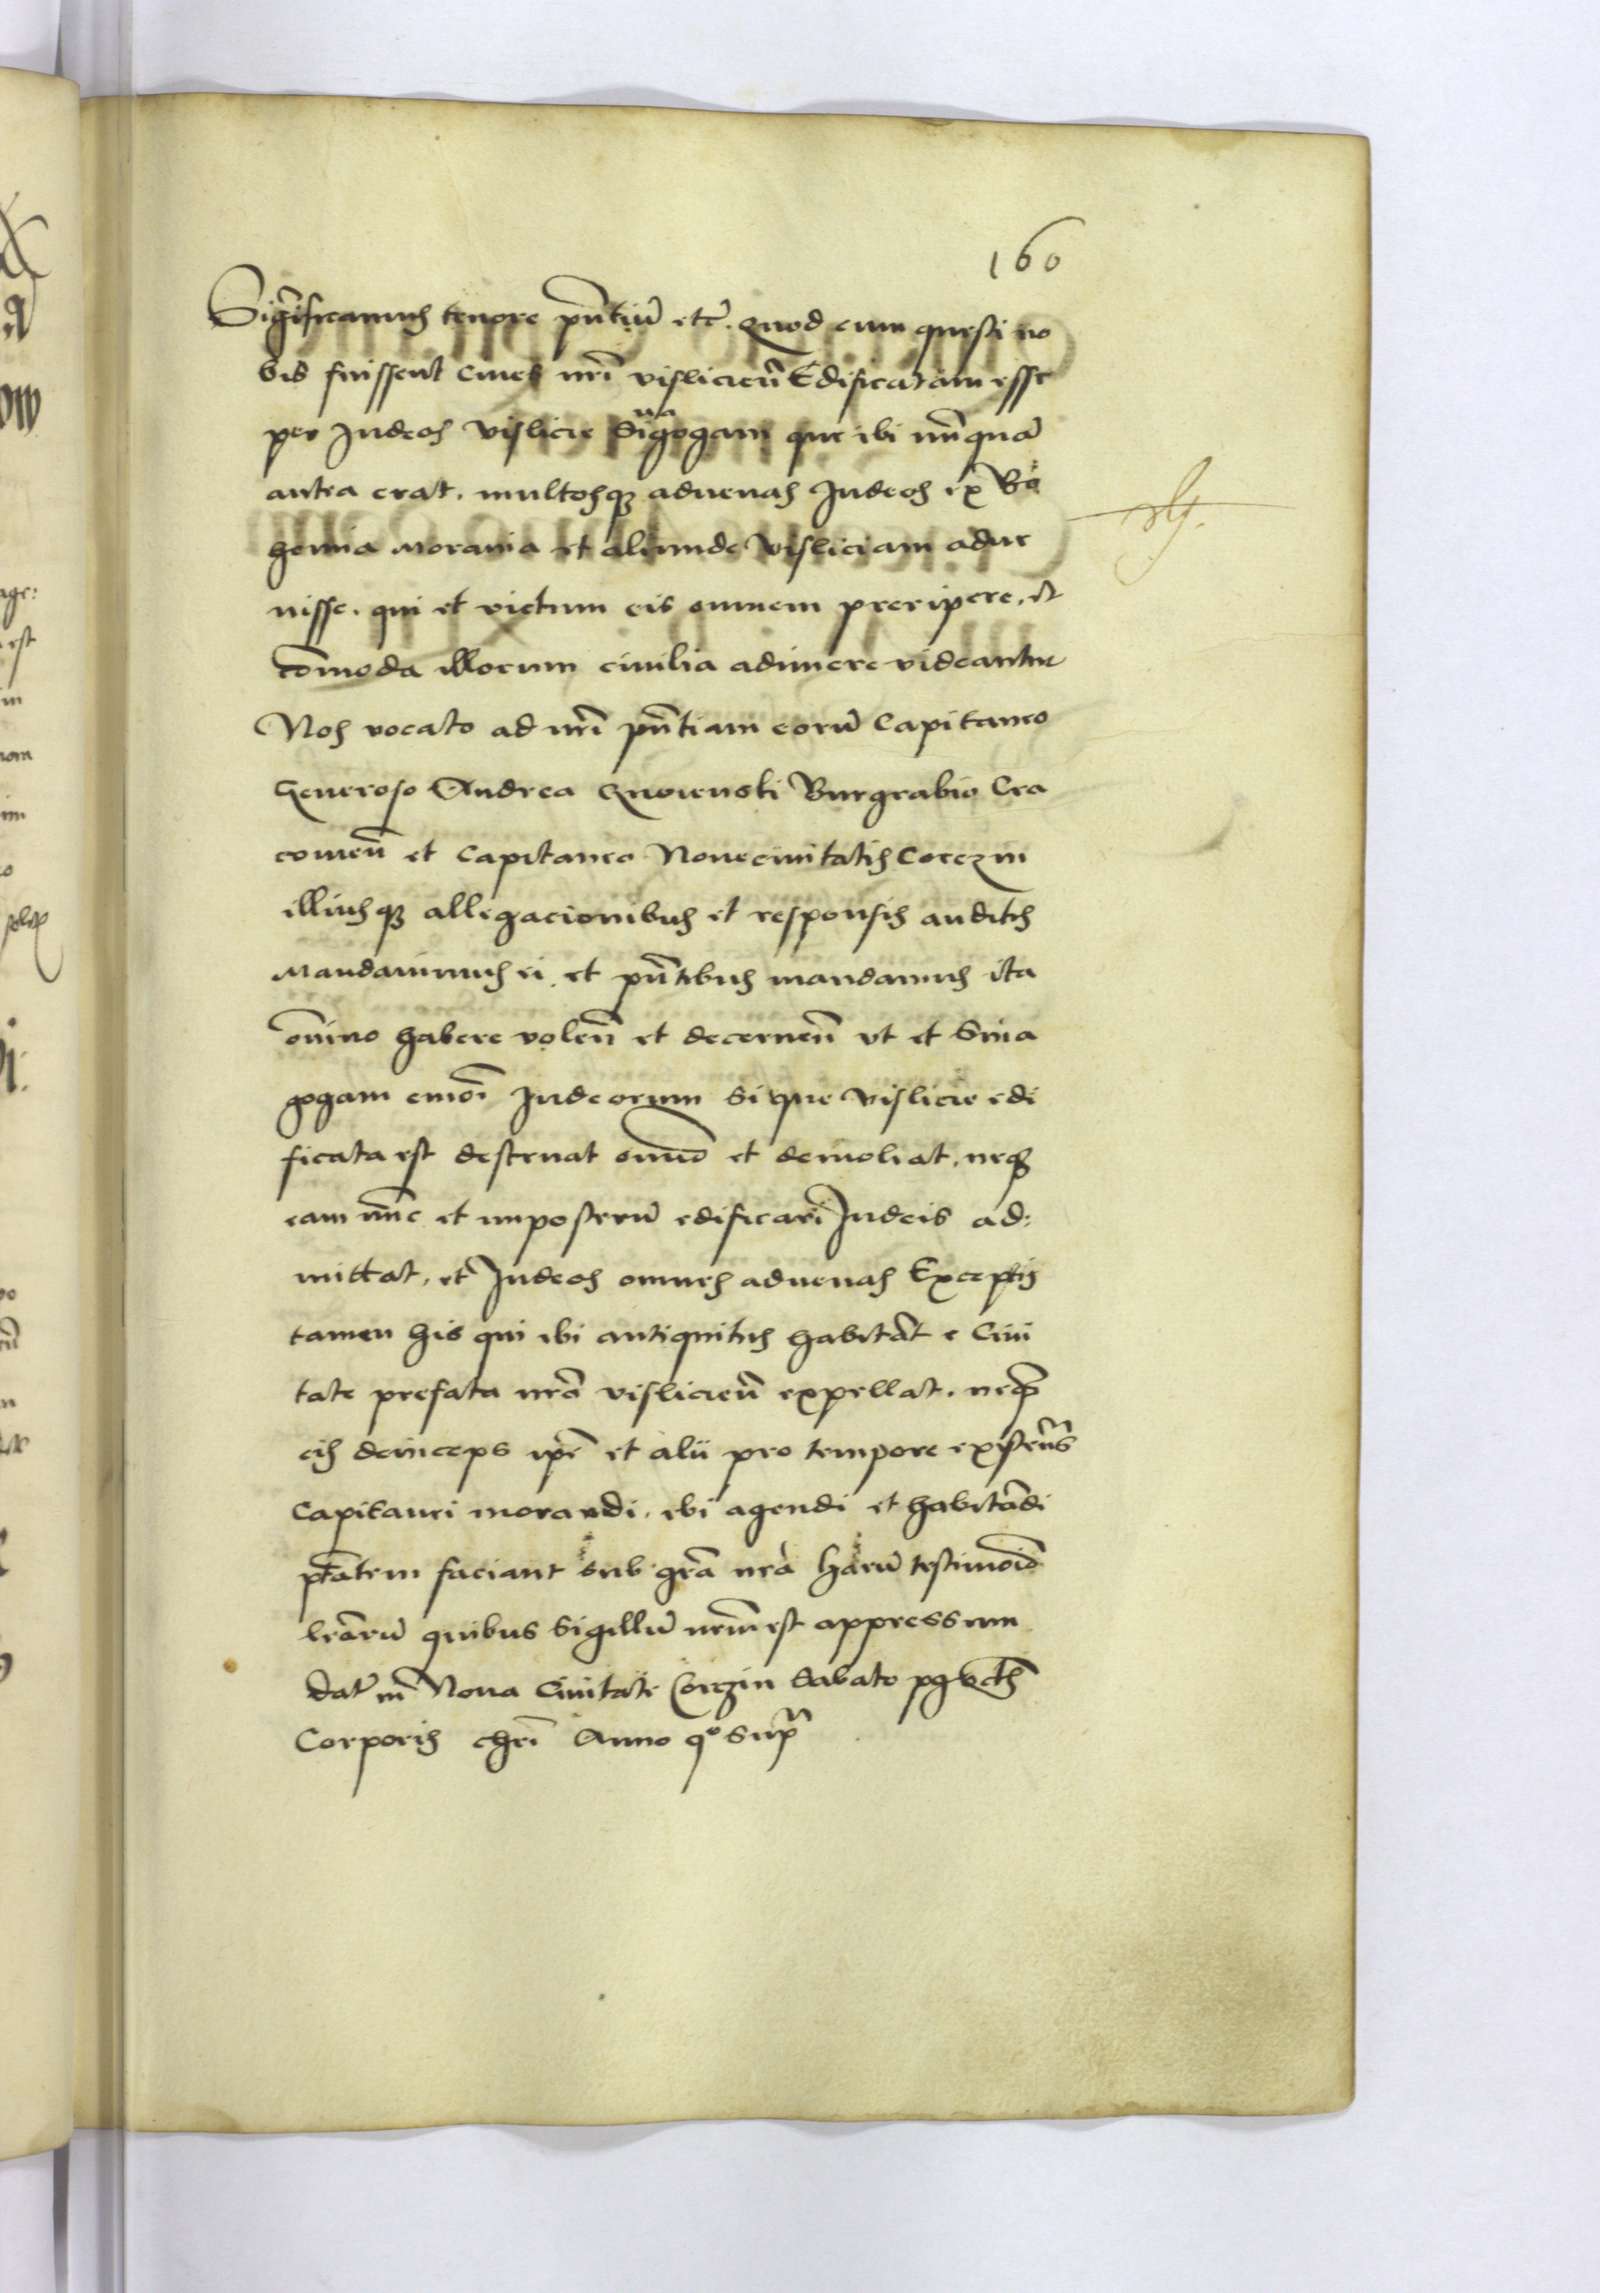 160
Significamus tenore pñtiũ etc̃. Quod cum questi no
bis fuissent Ciues nr̃i vislicien̄ Edificatam esse
per Iudeos vislicie Sinagogam que ibi nũnquã
antea erat. multosqꝫ aduenas Iudeos ex Bo
hemia Morauia et aliunde Visliciam adue
nisse. qui et victum eis omnem preripere. et
cõmoda illorum ciuilia adimere videantur
Nos vocato ad nr̃i pñtiam eorũ Capitaneo
Generoso Andrea Burgrabio Cra
couien̄ et Capitaneo Nouecivitatis Corczin
illiusqꝫ allegacionibus et responsis auditis
Mandauimus ei. et pñtibus mandamus ita
om̃ino habere volen̄ et decernen̄ vt et Sina
gogam Iudeorum si que vislicie edi
ficata est destruat om̃no et demoliat. neqꝫ
eam nũc et imposterũ edificari Iudeis ad:
mittat. et Iudeos omnes aduenas Exceptis
tamen his qui ibi antiquitus habitãt e Ciui
tate prefata nr̃a vislicien̄ expellat. neqꝫ
eis deinceps ip̃e et alii pro tempore existen̄s
Capitanei morandi. ibi agendi et habitãdi
ptãtem faciant sub gr̃a nr̃a Harũ testimoĩo
lr̃arũ quibus Sigillũ nr̃m est appressum
dat̃ in Noua Ciuitate Corczin Sabato
Corporis chr̃i Anno qº supra